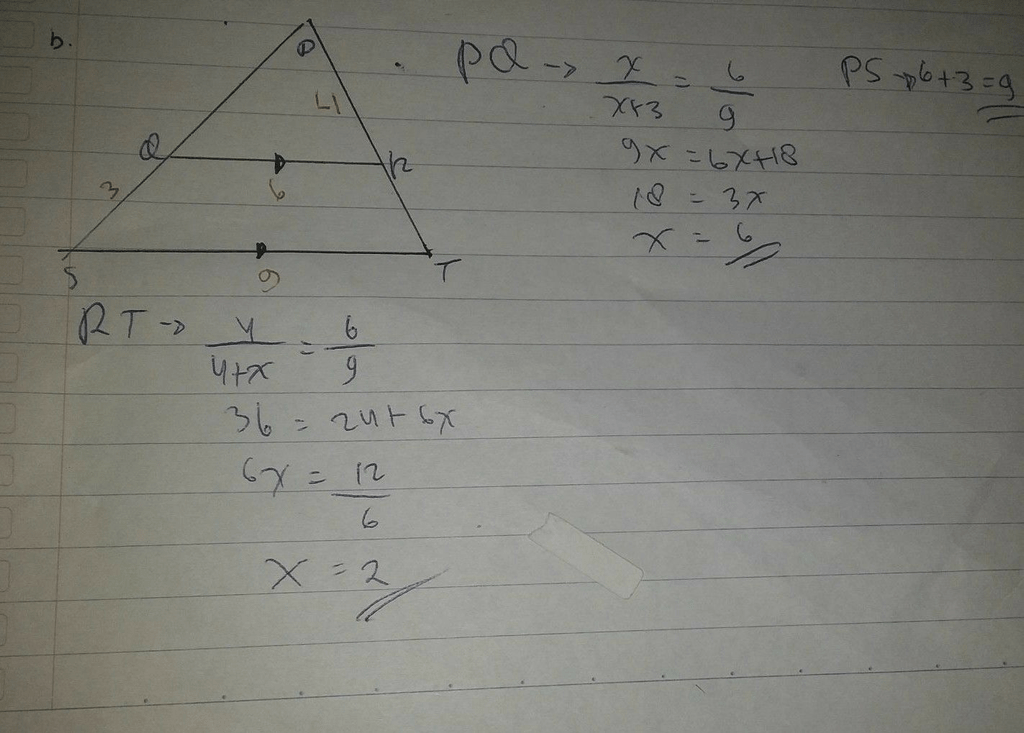 b.
P
4
Q
R
3
6
S
9
T
PQ → x/(x+3) = 6/9
9x = 6x+18
18 = 3x
x = 6
PS → 6+3 = 9
RT → 4/(4+x) = 6/9
36 = 24+6x
6x = 12/6
x = 2